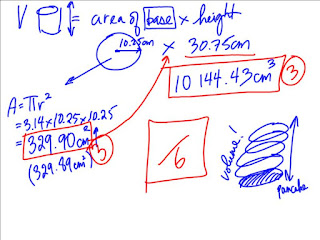 V = area of base × height
10.25cm × 30.75cm
10144.43cm³ ③
A = πr²
= 3.14 × 10.25 × 10.25
= 329.90cm² ③
(329.89cm²)
/6
volume!
pancake